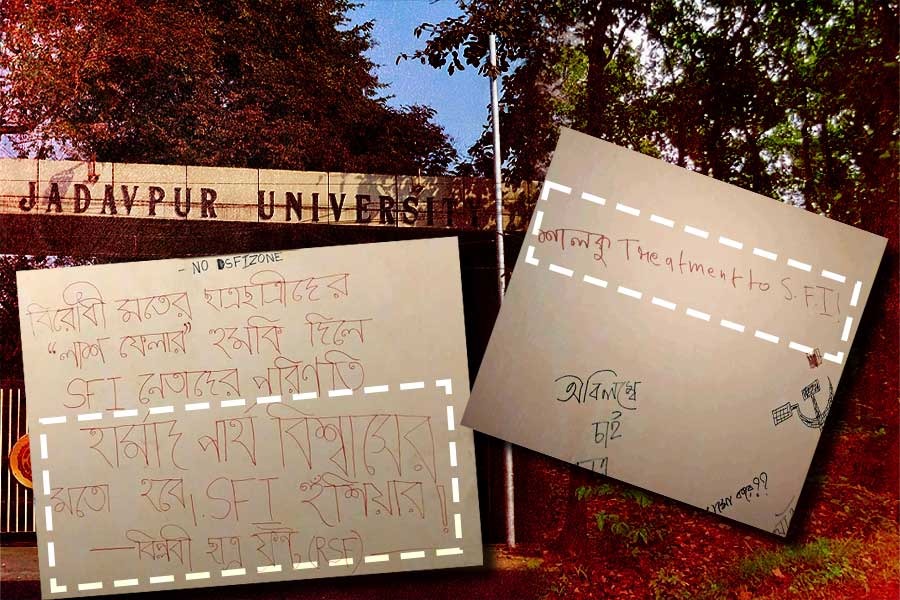 JADAVPUR UNIVERSITY
- NO DSFIZONE
বিরোধী মতের ছাত্রছাত্রীদের
"লাশ ফেলার" হুমকি দিলে
SFI নেতাদের পরিণতি
হার্মাদ পার্থ বিশ্বাসের
মতো হবে। SFI হুঁশিয়ার!
—বিপ্লবী ছাত্র ফ্রন্ট (RSF)—
শালকু Treatment to S.F.I!
অবিলম্বে
চাই